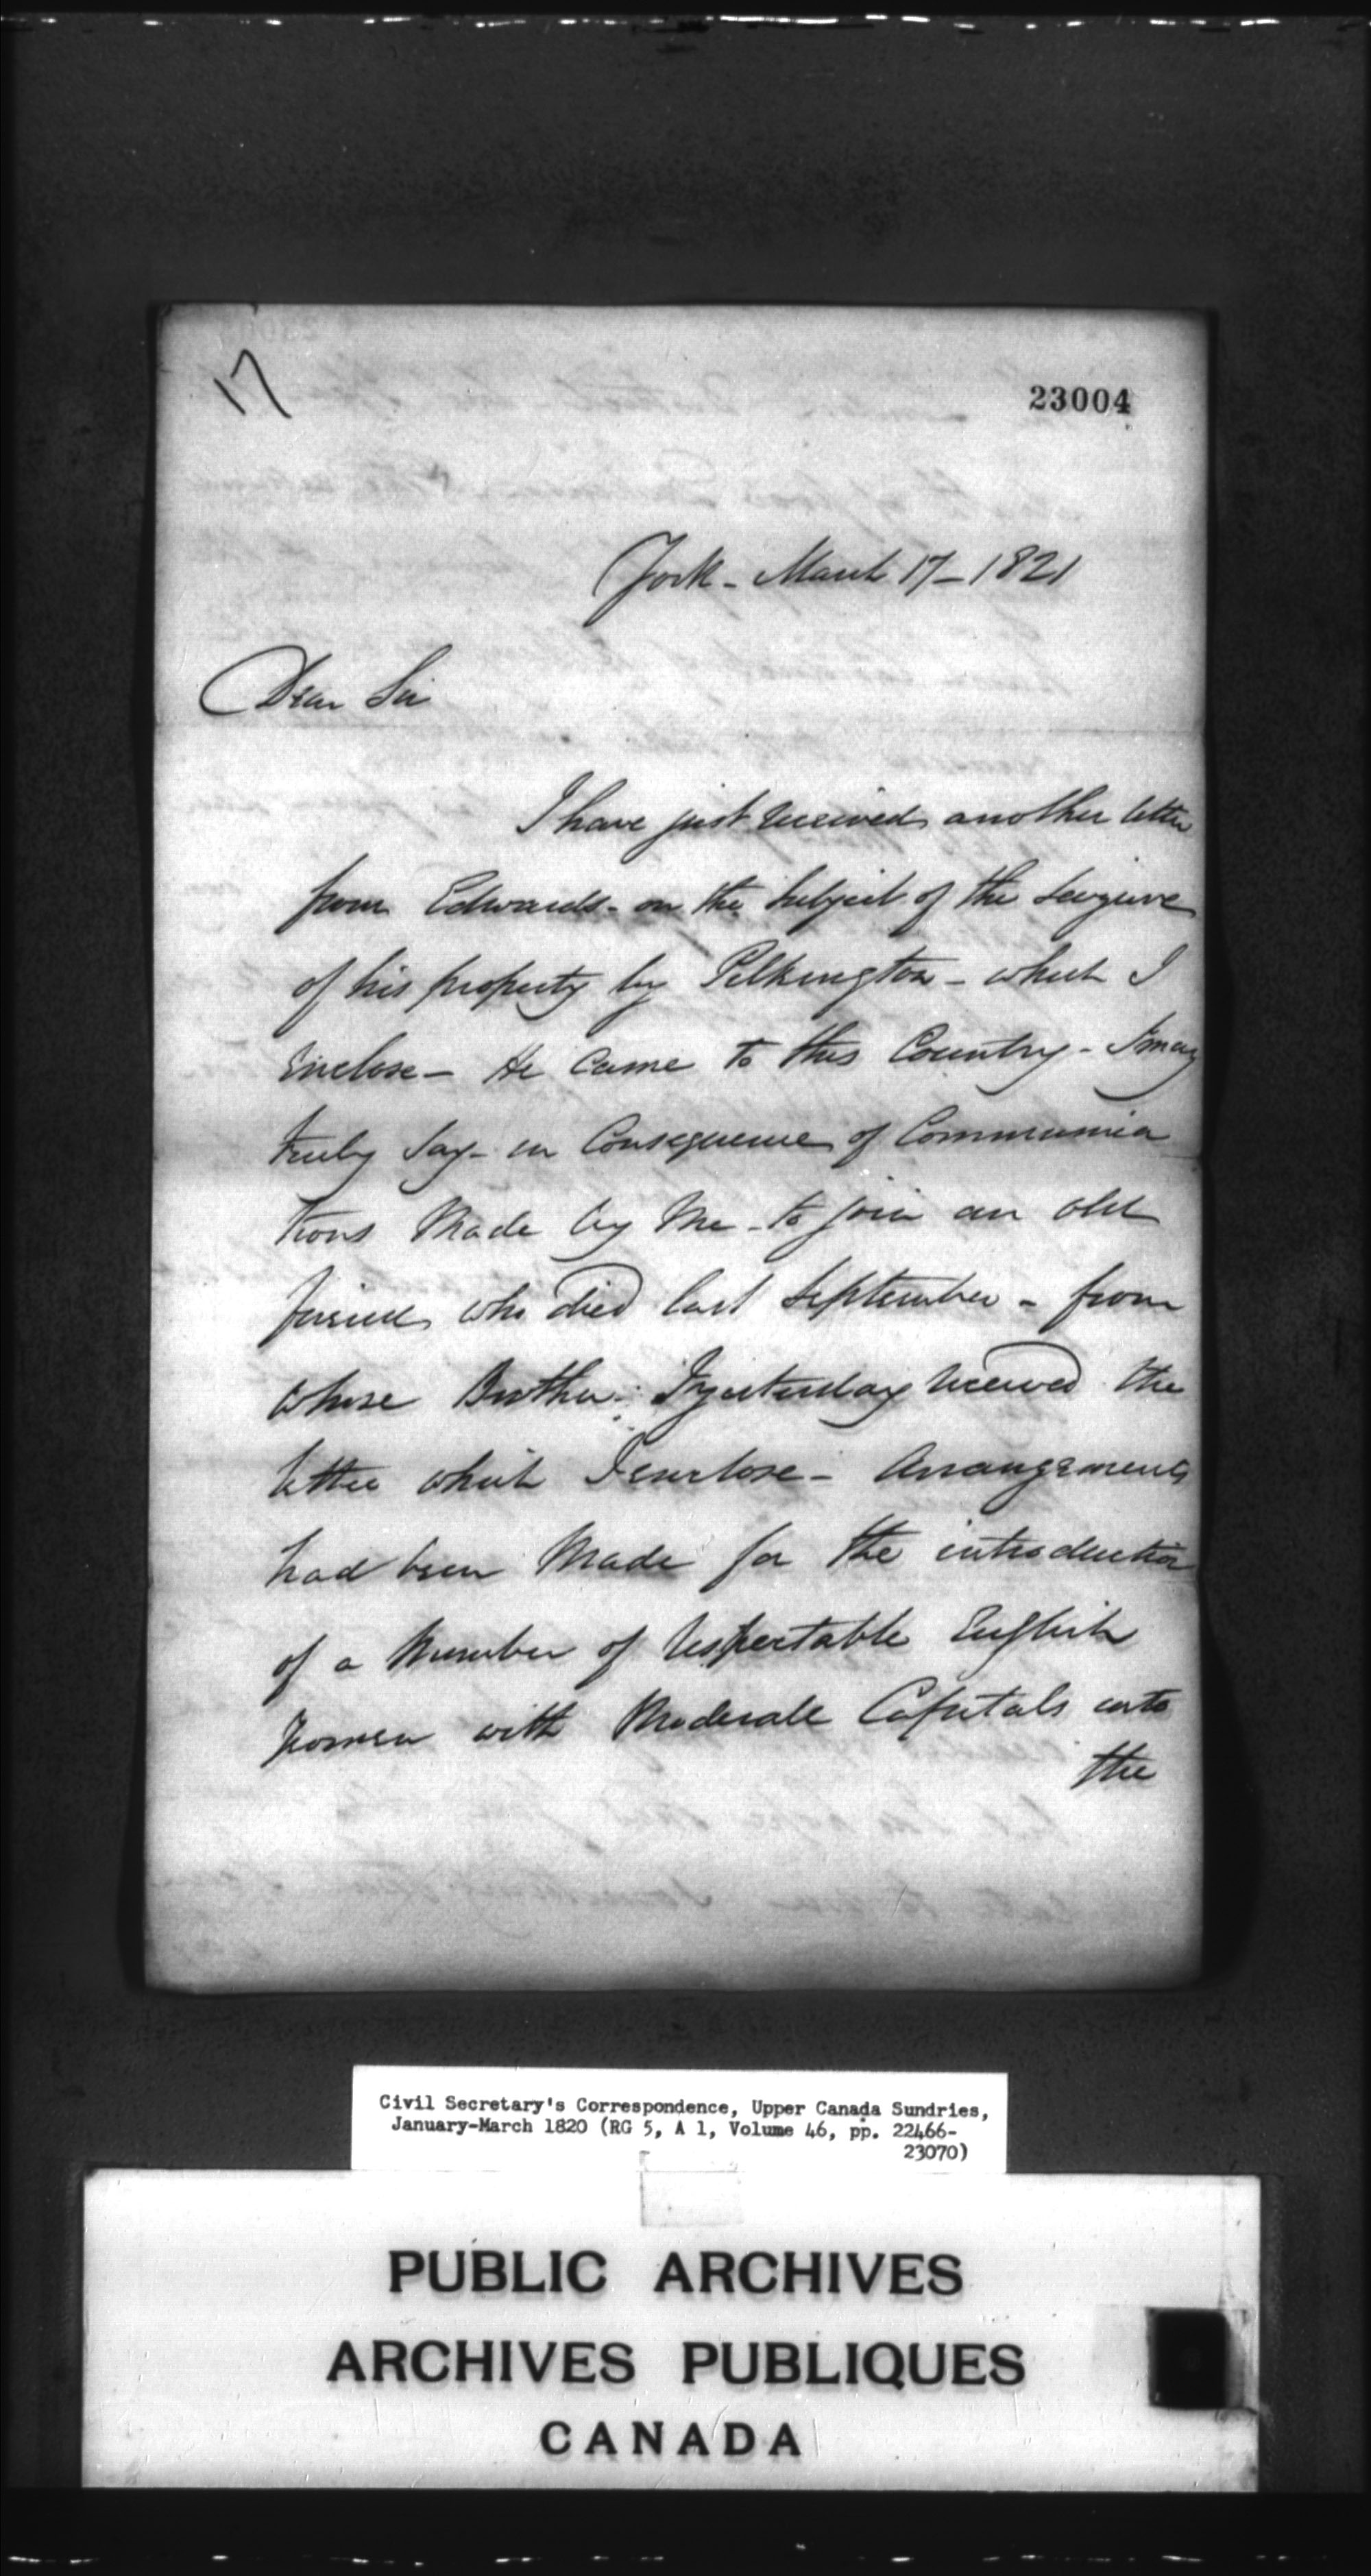 17
23004
York - March 17 - 1821
Dear Sir
I have just received another letter
from Edwards - on the Subject of the Seizure
of his property by Pilkington - which I
Enclose - He came to this Country - I may
truly Say - in Consequence of Communica
tions Made by Me - to join an old
friend who died last September - from
whose Brother I yesterday received the
letter which I enclose - Arrangements
had been Made for the introduction
of a Number of respectable English
Yeomen with Moderate Capitals into
the
Civil Secretary's Correspondence, Upper Canada Sundries,
January-March 1820 (RG 5, A 1, Volume 46, pp. 22466-
23070)
PUBLIC ARCHIVES
ARCHIVES PUBLIQUES
CANADA